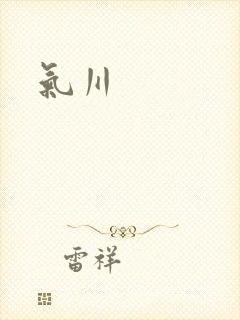 氣川
雷祥